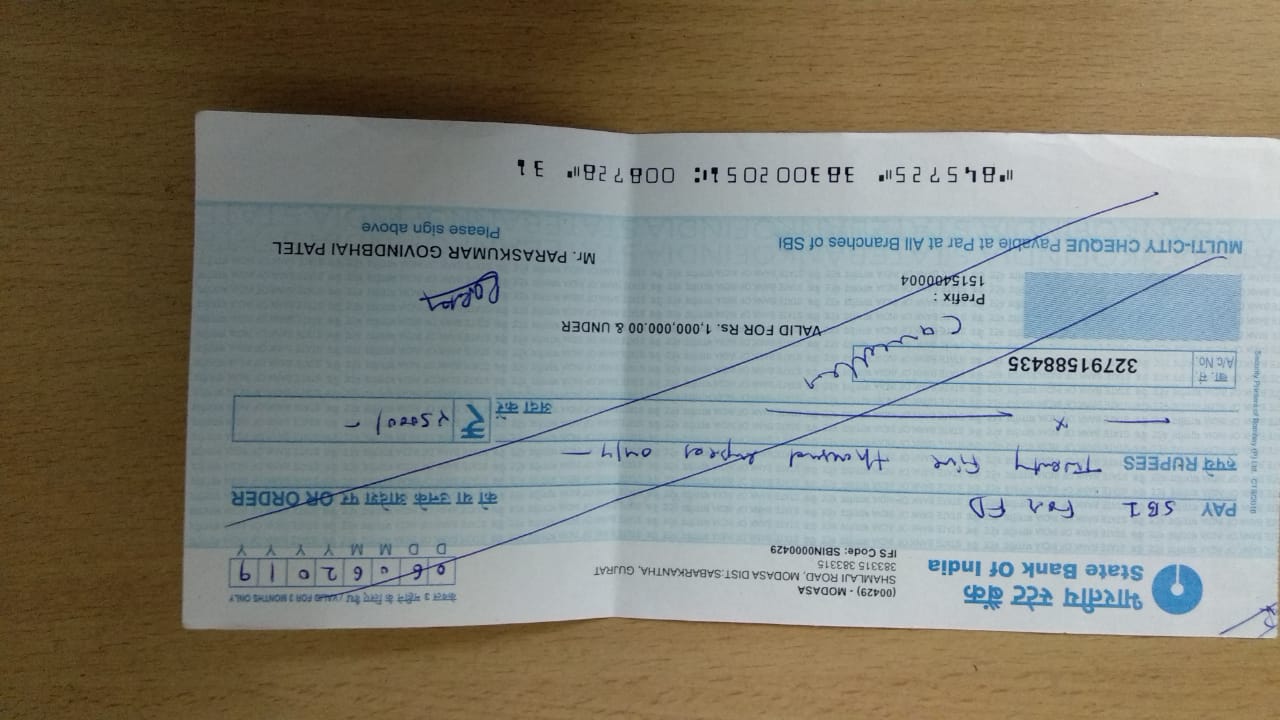 भारतीय स्टेट बैंक
State Bank Of India
(00429) - MODASA
SHAMLAJI ROAD, MODASA DIST:SABARKANTHA, GUJRAT
383315 383315
IFS Code: SBIN0000429
केवल 3 महीने के लिए वैध / VALID FOR 3 MONTHS ONLY
0 6 0 6 2 0 1 9
D D M M Y Y Y Y
PAY SBI For FD
को या उनके आदेश पर OR ORDER
रुपये RUPEES Twenty Five thousand rupees only —
— x —
अदा करें ₹ 25000/-
खा. सं. A/c No. 32791588435
Cancelled
VALID FOR Rs. 1,000,000.00 & UNDER
Prefix :
1515400004
MULTI-CITY CHEQUE Payable at Par at All Branches of SBI
Mr. PARASKUMAR GOVINDBHAI PATEL
Please sign above
⑈845725⑈ 383002051⑆ 008728⑈ 31